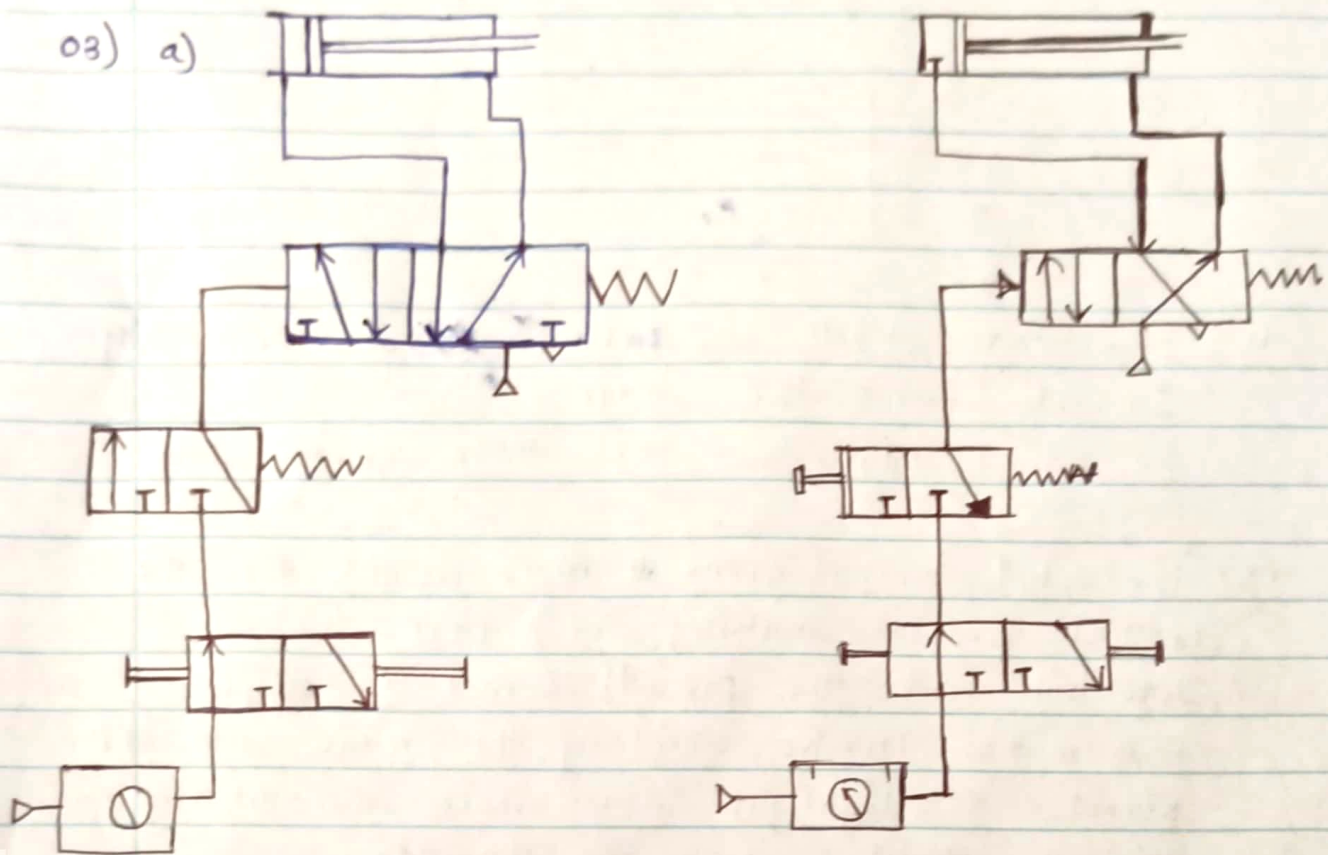 03) a)